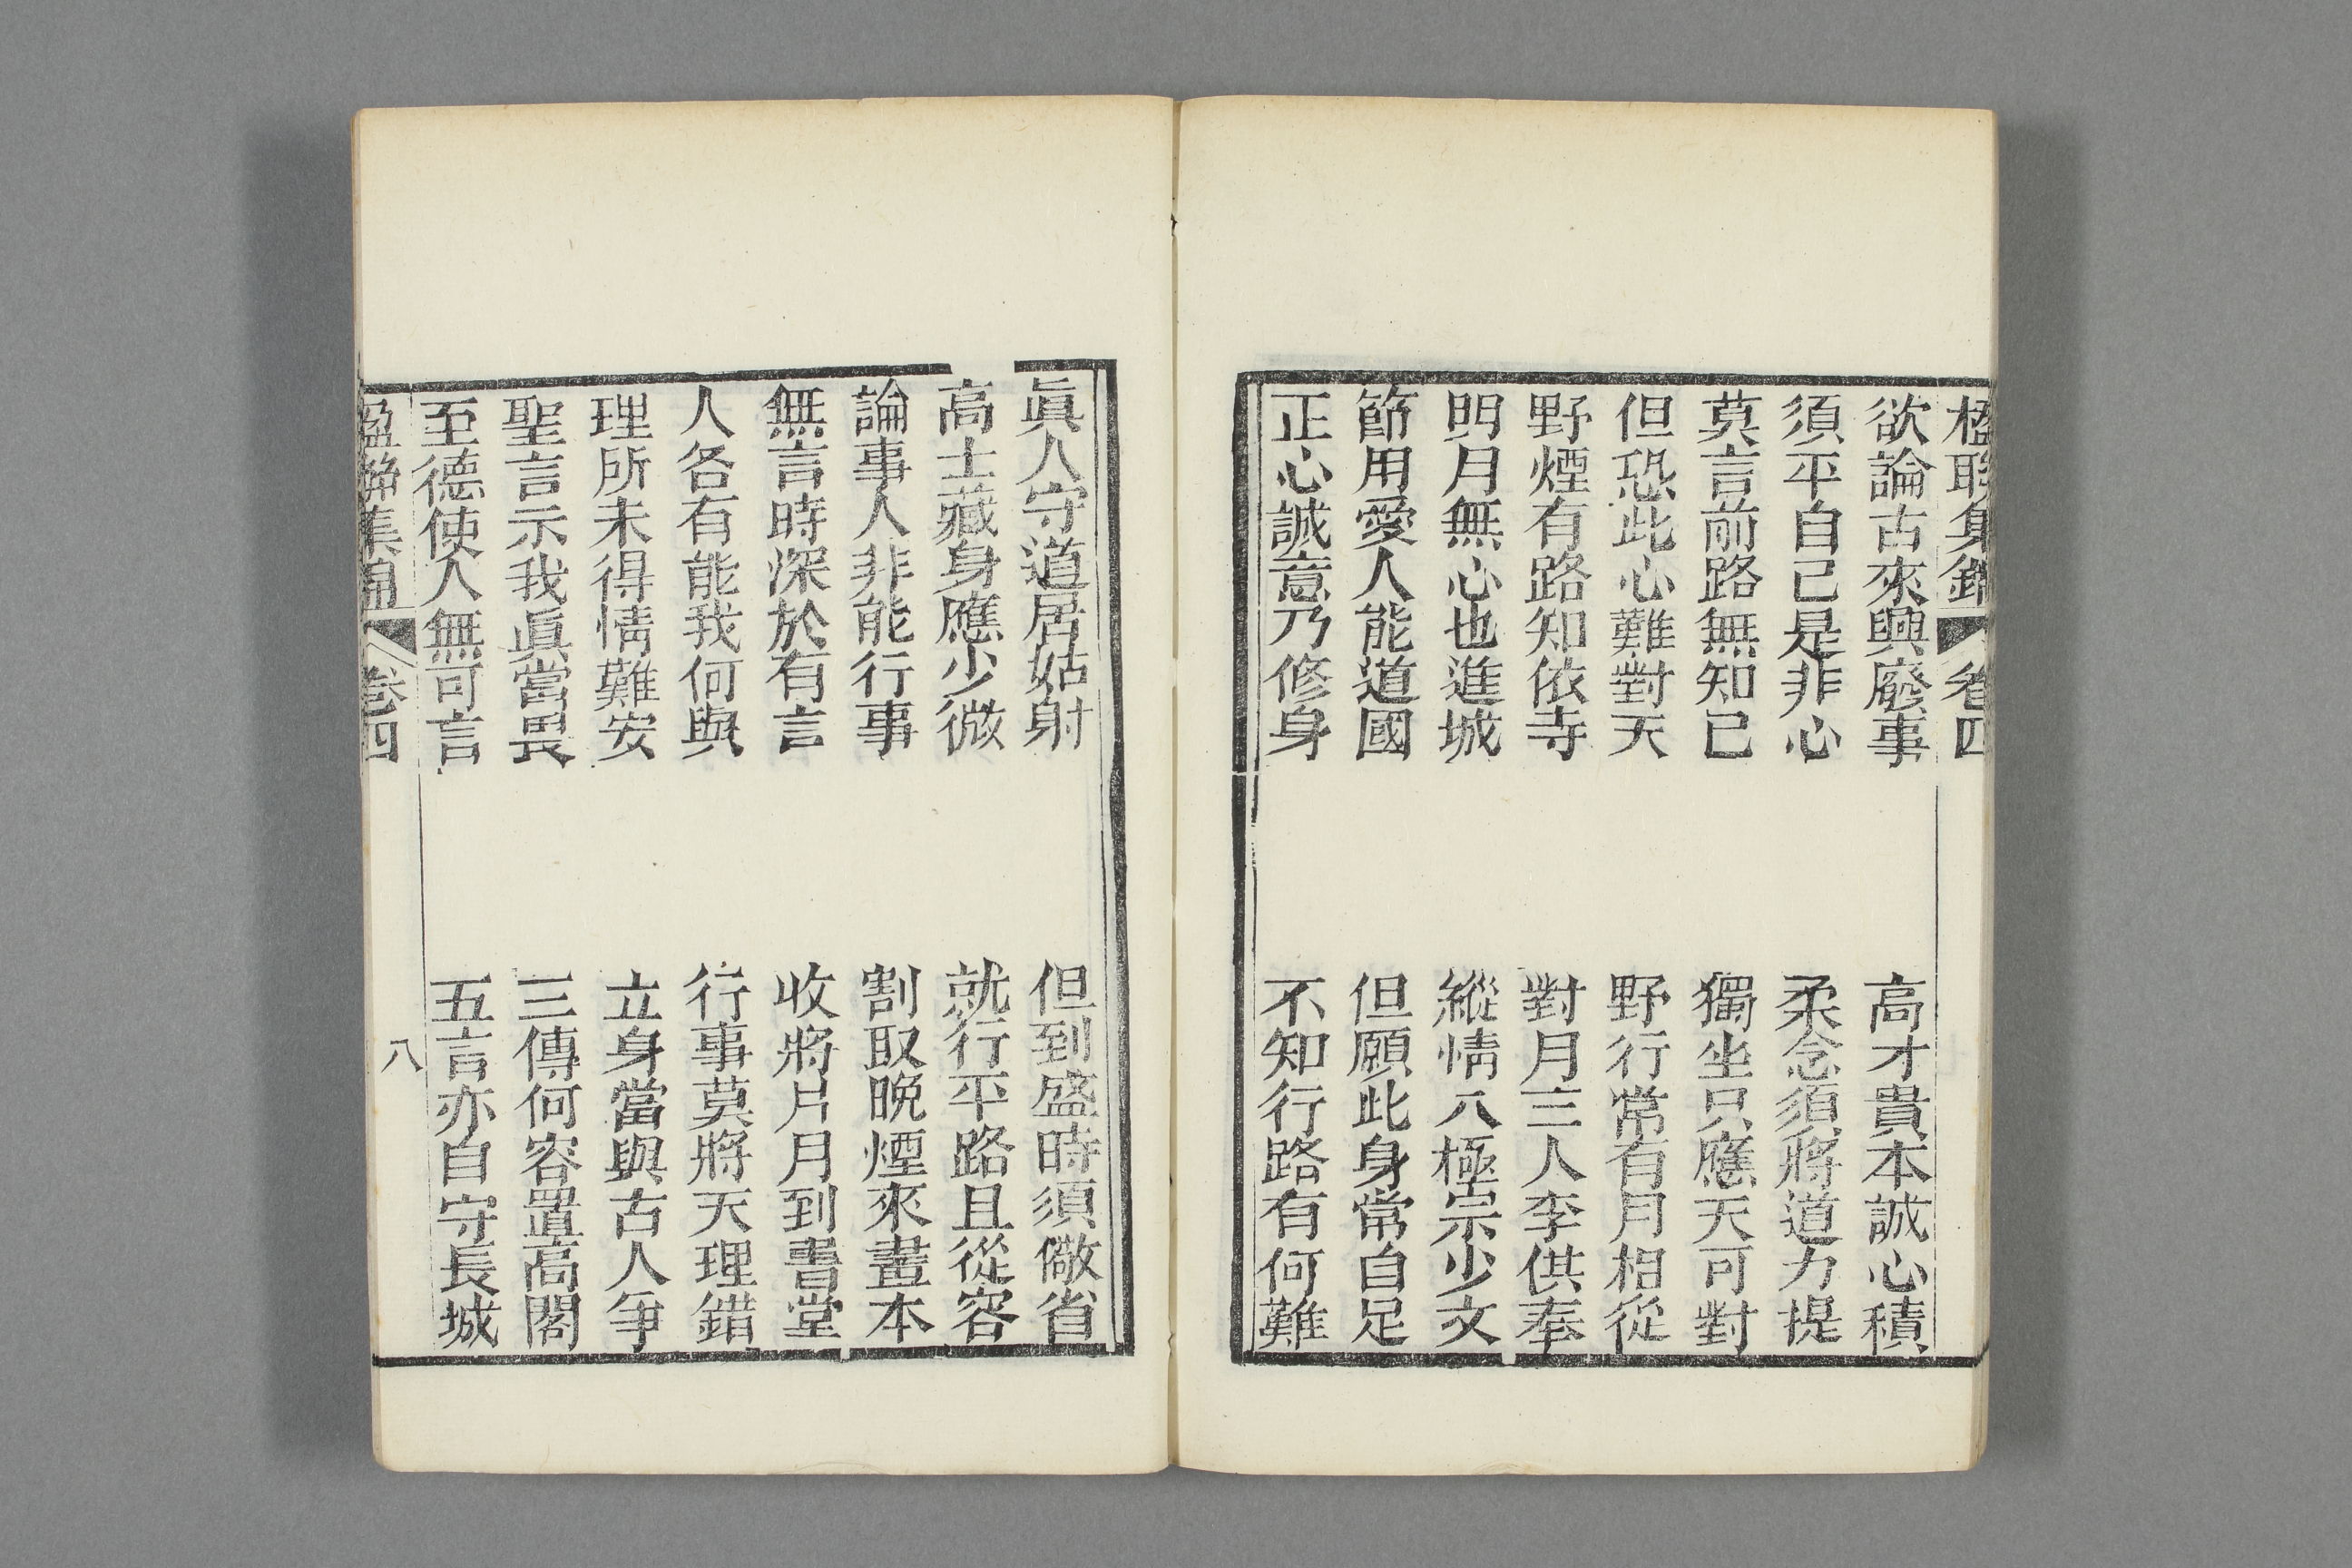 楹聯集錦 卷四
欲論古來興廢事 高才貴本誠心積
須平自己是非心 柔念須將道力提
莫言前路無知己 獨坐只應天可對
但恐此心難對天 野行常有月相從
野煙有路知依寺 對月三人李供奉
明月無心也進城 縱情八極宗少文
節用愛人能道國 但願此身常自足
正心誠意乃修身 不知行路有何難
眞人守道居姑射 但到盛時須儆省
高士藏身應少微 就行平路且從容
論事人非能行事 割取晚煙來畫本
無言時深於有言 收將片月到書堂
人各有能我何與 行事莫將天理錯
理所未得情難安 立身當與古人爭
聖言示我眞當畏 三傳何容置高閣
至德使人無可言 五言亦自守長城
楹聯集錦 卷四 八